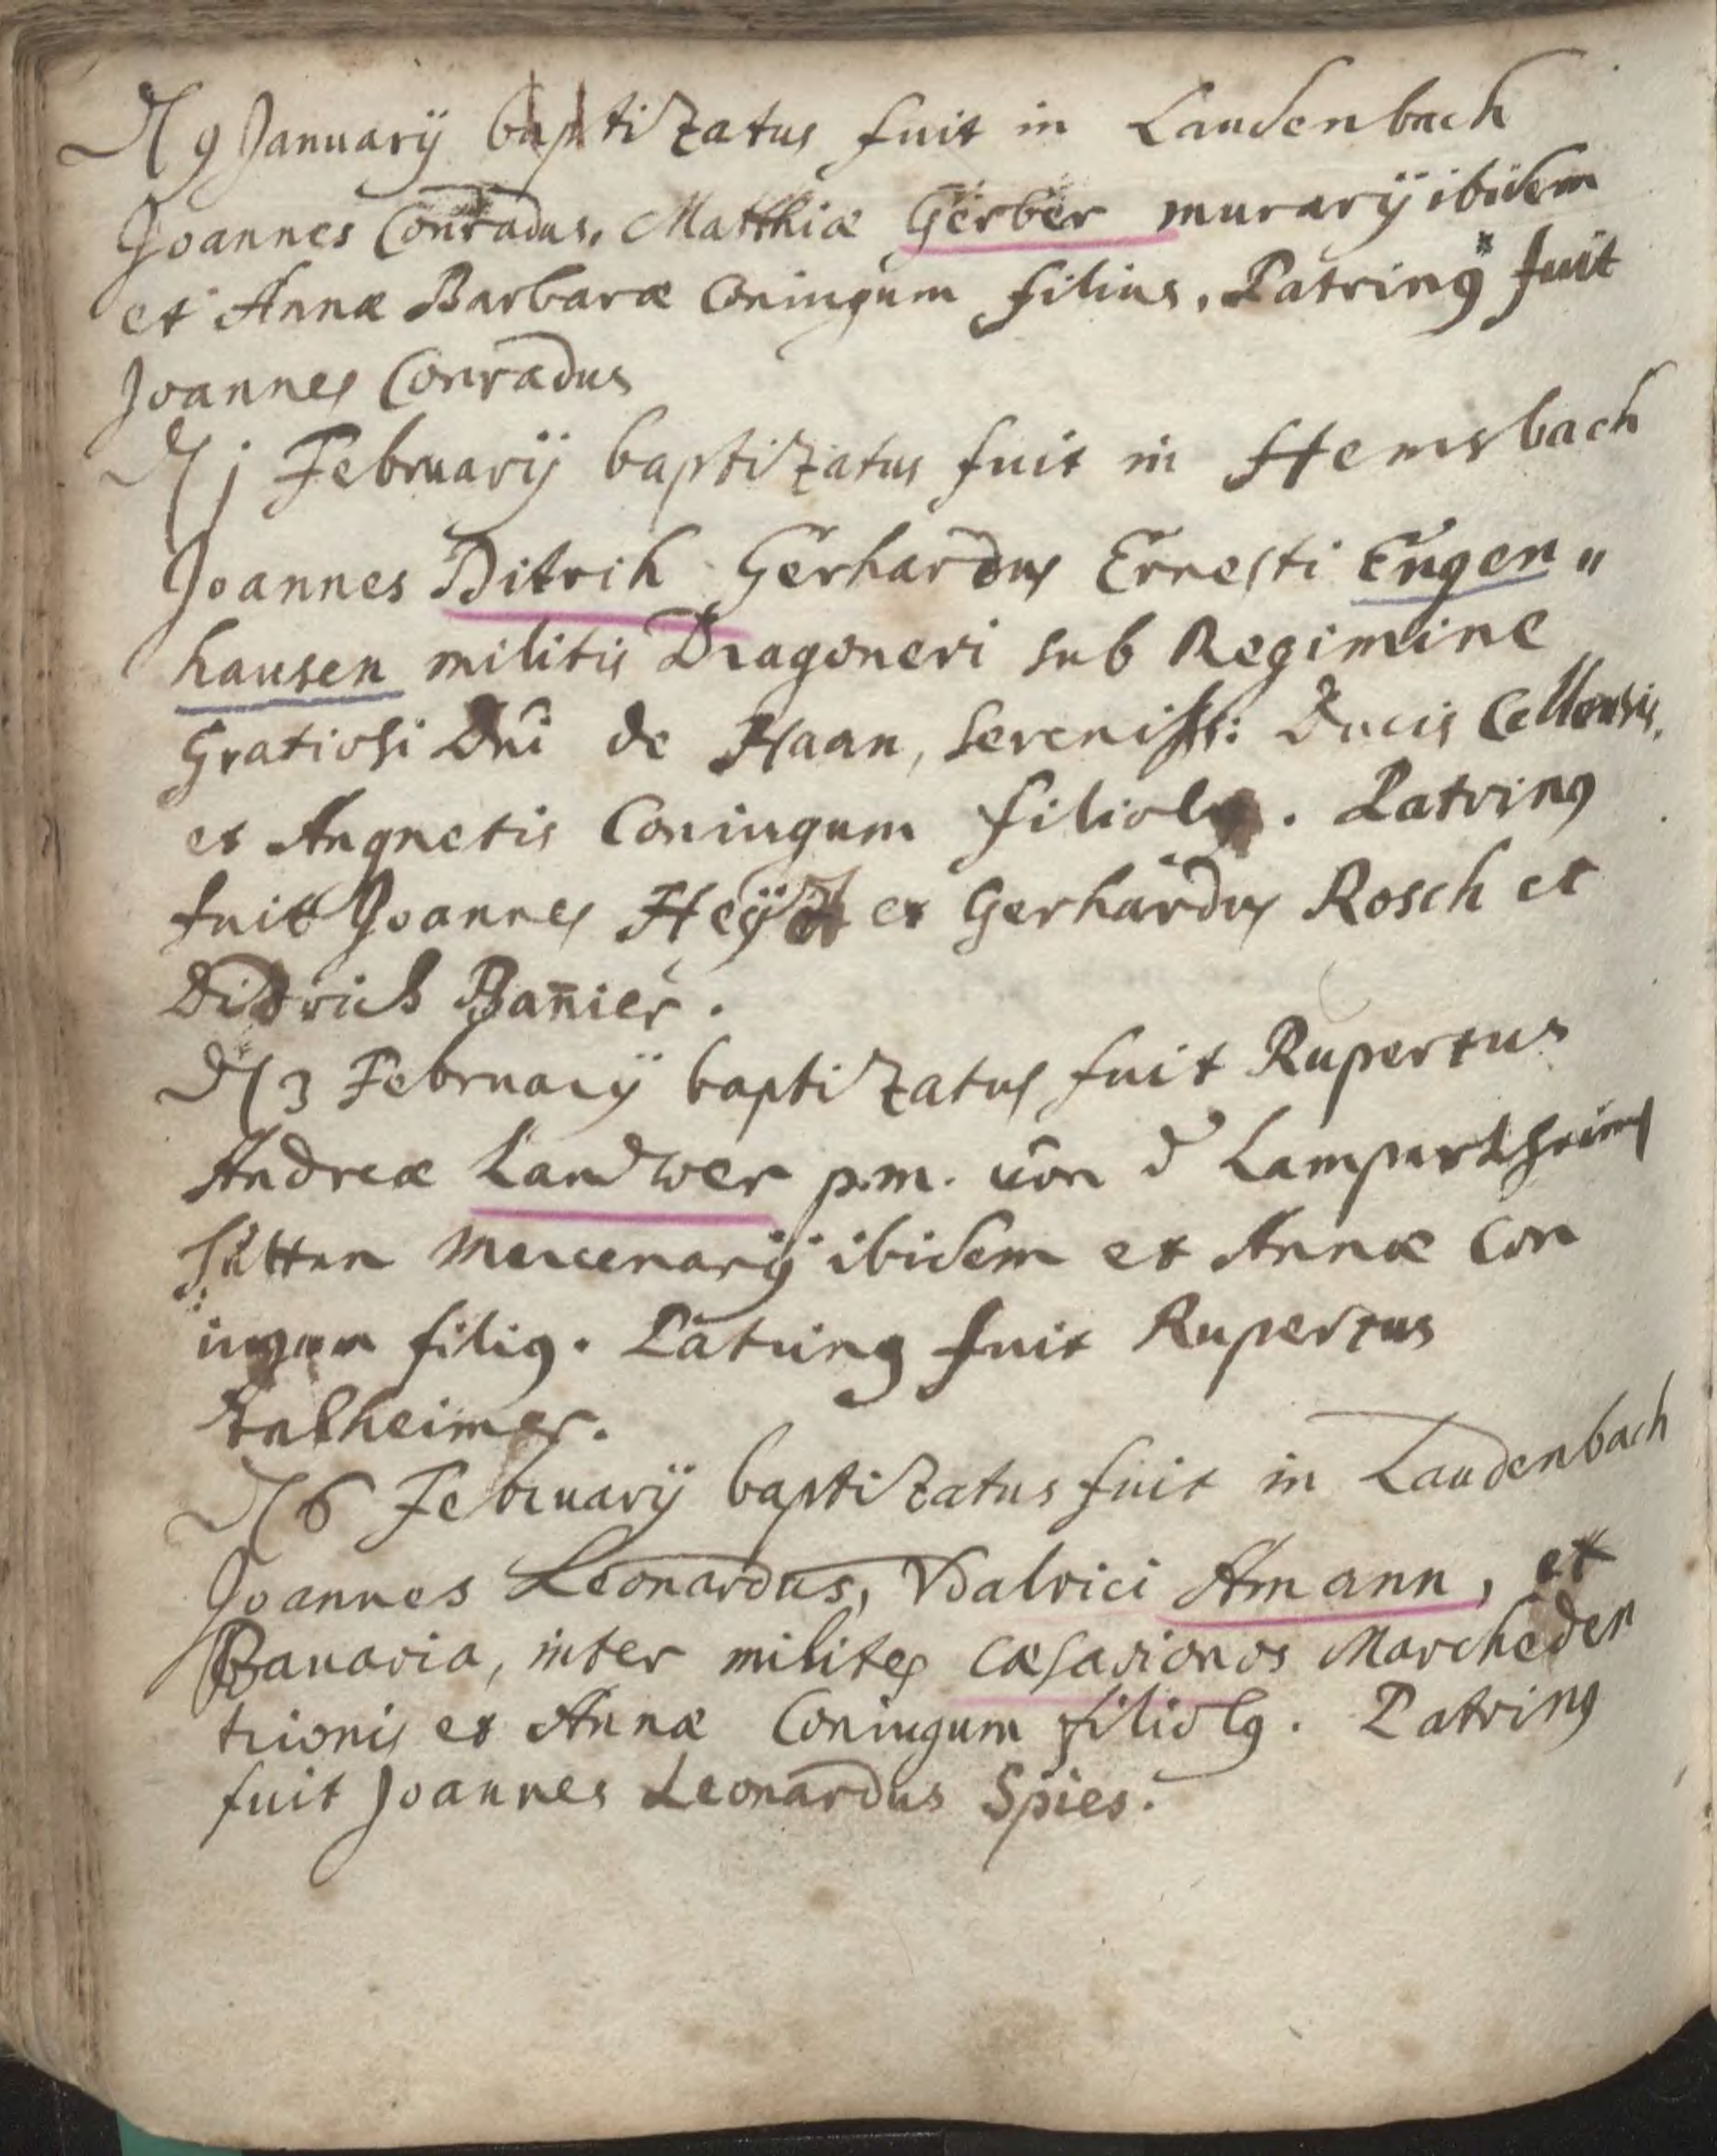 9 Januarij baptizatus fuit in Laudenbach
Joannes Conradus, Matthiæ Gerber murarij ibidem
et Annæ Barbaræ Coniugum filius. Patrin9 fuit
Joannes Conradus
j Februarij baptizatus fuit in Hemsbach
Joannes Ditrih Gerhardus Ernesti Engen"
hausen militis Dragoneri sub Regimine
Gratiosi Dni de Haan, sereniss: Ducis Cellensis,
et Angnetis Coniugum filiol9. Patrin9
fuit Joannes et Gerhardus Rosch et
Didrich Bañier.
3 Februarij baptizatus fuit Rupertus
Andreæ Landwer p.m. von d Lampertheimer
hütten mercenarij ibidem et Annæ Con
iugum fili9. Patrin9 fuit Rupertus
6 Februarij baptizatus fuit in Laudenbach
Joannes Leonardus, Vdalrici Amann, et
Bauaria, inter milites Cæsarionos Marcheden
trionis et Annæ Coniugum filiol9. Patrin9
fuit Joannes Leonardus Spies.